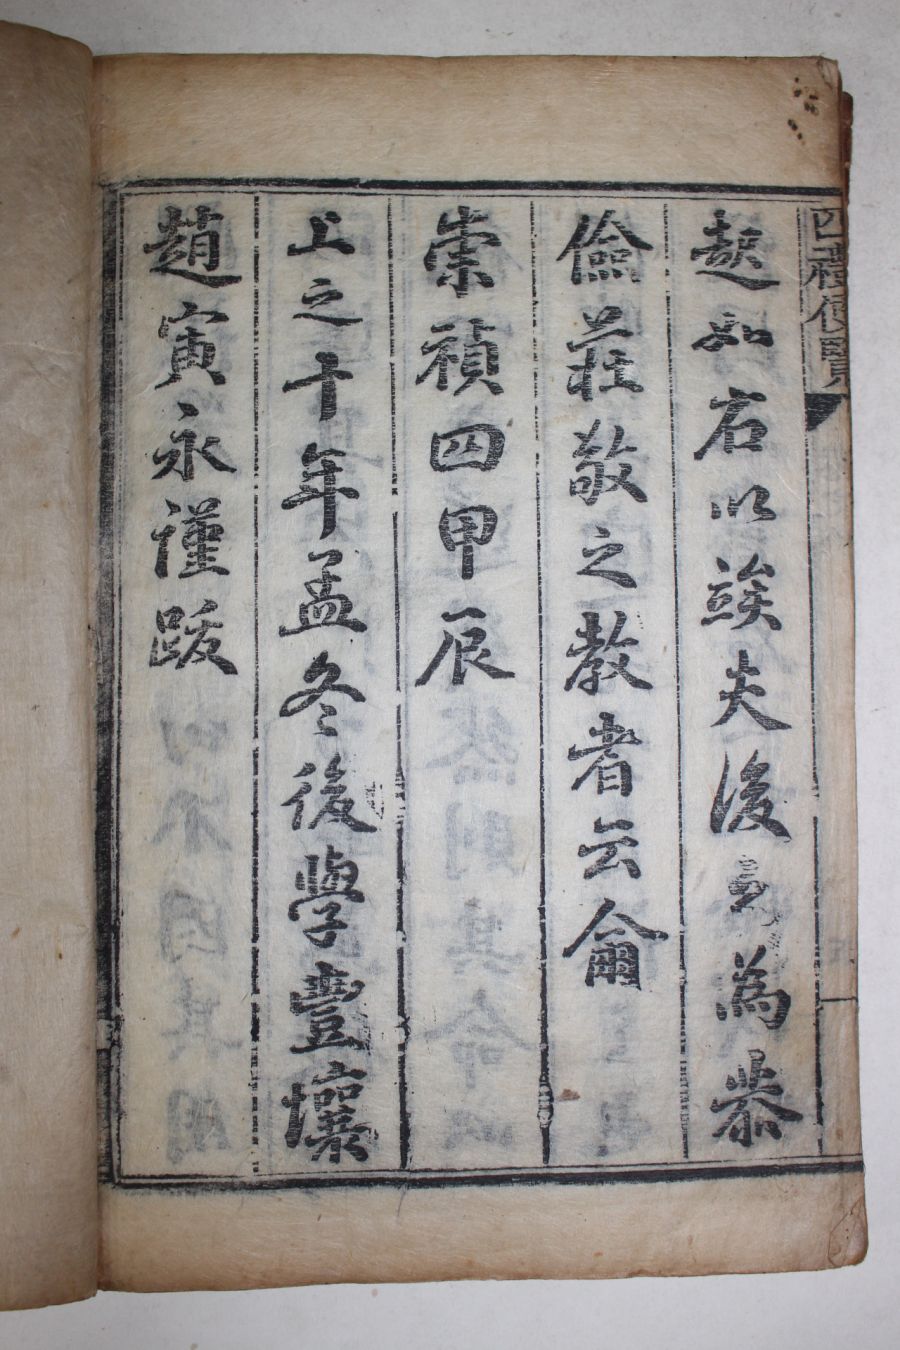 四禮便覽
趍如右以竢夫後之為恭
儉莊敬之教者云爾
崇禎四甲辰
上之十年孟冬後學豊壤
趙寅永謹跋